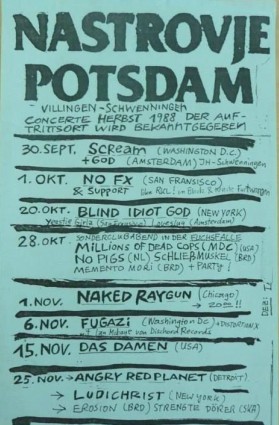 NASTROVJE
POTSDAM
VILLINGEN-SCHWENNINGEN
CONCERTE HERBST 1988 DER AUF-
TRITTSORT WIRD BEKANNTGEGEBEN
30. SEPT. SCREAM (WASHINGTON D.C.)
+GOD (AMSTERDAM) JH-Schwenningen
1. OKT. NO FX (SAN FRANSISCO)
& SUPPORT
20. OKT. BLIND IDIOT GOD (NEW YORK)
(Amsterdam)
28. OKT. SONDERCLUBABEND IN DER
MILLIONS OF DEAD COPS (MDC) (USA)
NO PIGS (NL) SCHLIEßMUSKEL (BRD)
MEMENTO MORI (BRD) + PARTY!
1. NOV. NAKED RAYGUN (Chicago)
6. NOV. FUGAZI (Washington Dc)
Dischord Records
15. NOV. DAS DAMEN (USA)
25. NOV. → ANGRY RED PLANET (DETROIT)
→ LUDICHRIST (NEW YORK)
→ EROSION (BRD) STRENGTE DÖRER (SKA)